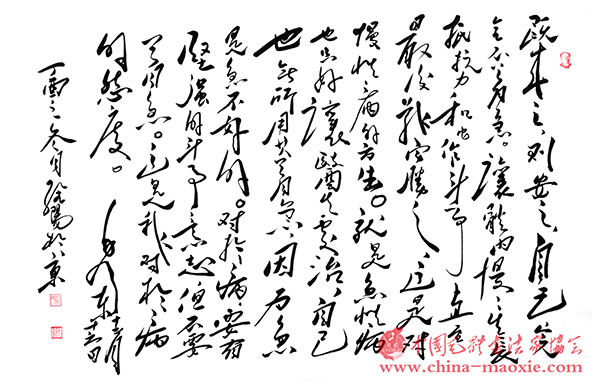 既来之、则安之、自己完
全不着急。讓体内慢々生長
抵抗力和它作斗争直至
最后战而胜之、这是对
慢性病的方法。就是急性病
也只好讓醫生处治、自己
也无所用其着急、因为急
是急不好的。对於病、要有
坚强的斗争意志、但不要
着急。这是我对於病
的态度。毛泽东十二月十六日
丁酉之冬月
中国毛体书法家协会
www.china-maoxie.com